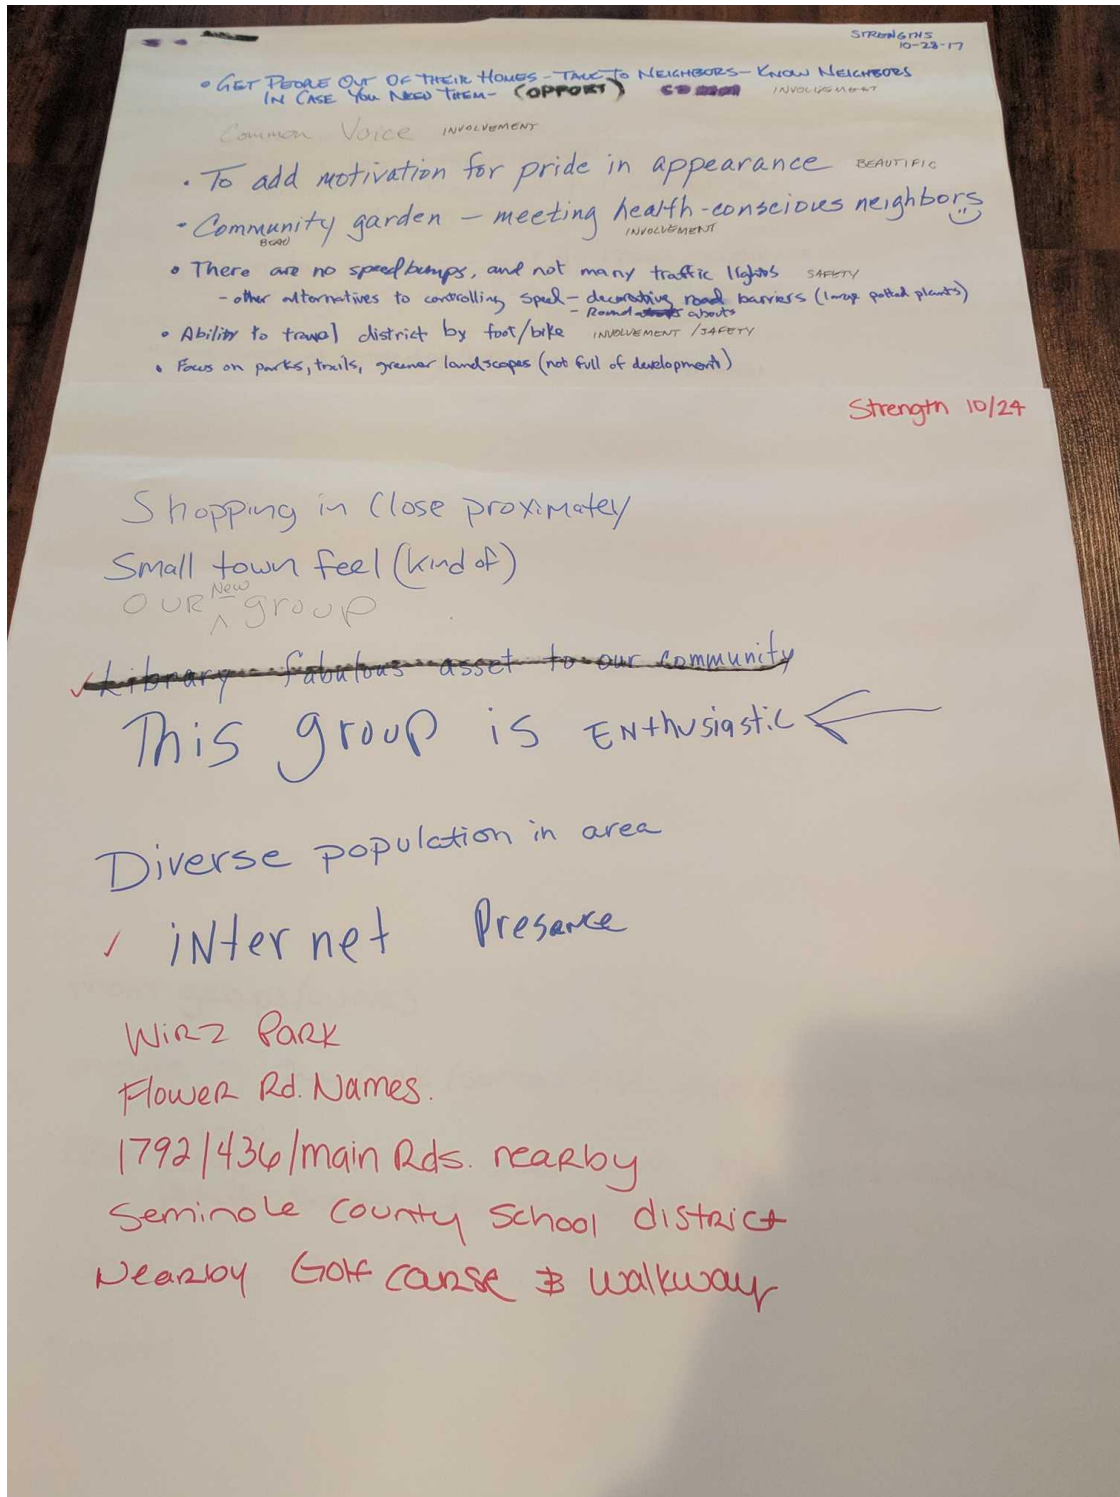 STRENGTHS
10-23-17
• GET PEOPLE OUT OF THEIR HOMES - TALK TO NEIGHBORS - KNOW NEIGHBORS
IN CASE YOU NEED THEM - (OPPORT) INVOLVEMENT
Common Voice INVOLVEMENT
• To add motivation for pride in appearance BEAUTIFIC
• Community garden - meeting health-conscious neighbors
INVOLVEMENT
• There are no speedbumps, and not many traffic lights SAFETY
- other alternatives to controlling speed - decorative road barriers (large potted plants)
- Round abouts
• Ability to travel district by foot/bike INVOLVEMENT / SAFETY
• Focus on parks, trails, greener landscapes (not full of development)
Strength 10/24
Shopping in Close proximately
Small town feel (kind of)
OUR New group
✓ Library fabulous asset to our community
This group is ENthusiastic
Diverse population in area
✓ iNternet Presance
WIRZ PARK
Flower Rd. Names.
1792/436/main Rds. nearby
Seminole County School district
Nearby Golf course & walkway